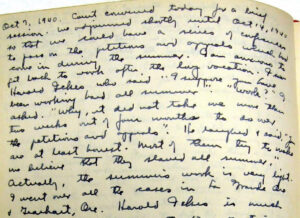 Oct 7, 1940. Court convened today for a brief
session. We adjourned shortly until Oct. 14, 1940
so that we could have a series of conferences
on the petitions and appeals which had
come in during the summer. I am anxious to
get back to work after the long vacation. I saw
Harold Ickes who said: "I suppose you have
been working hard all summer." "Work" I
asked. "Why, it did not take me more than
two weeks out of four months to do over
the petitions and appeals". He laughed & said "you
are at least honest. Most of them try to make
us believe that they slaved all summer."
Actually, the summer's work is very light.
I went over all the cases in
& Gearhart, Ore. Harold Ickes is much